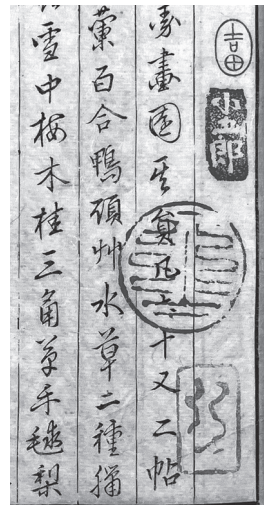 吉田
小五郎
畫圖其員凡六十又二帖
蘭百合鴨頭艸水草二種
雪中梅木桂三角草手毬梨